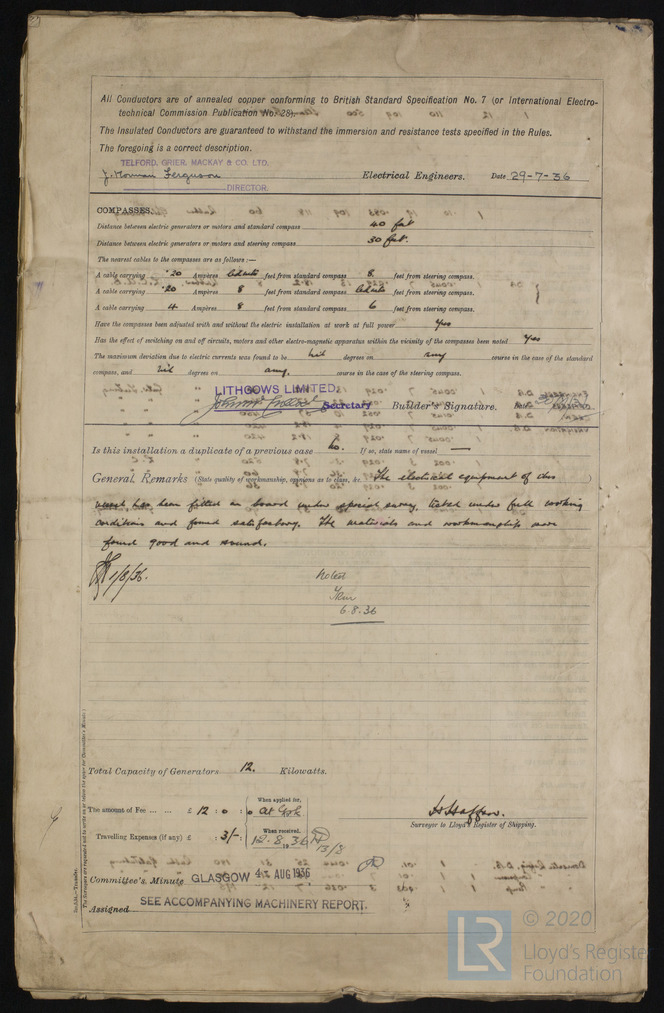 All Conductors are of annealed copper conforming to British Standard Specification No. 7 (or International Electro-
technical Commission Publication No. 28).
The Insulated Conductors are guaranteed to withstand the immersion and resistance tests specified in the Rules.
The foregoing is a correct description.
TELFORD, GRIER, MACKAY & CO. LTD.
J. Norman Ferguson Electrical Engineers. Date 29-7-36
DIRECTOR.
COMPASSES.
Distance between electric generators or motors and standard compass 40 feet
Distance between electric generators or motors and steering compass 30 feet.
The nearest cables to the compasses are as follows:—
A cable carrying .20 Amperes feet from standard compass 8. feet from steering compass.
A cable carrying .20 Amperes 8 feet from standard compass feet from steering compass.
A cable carrying 4 Amperes 8 feet from standard compass 6 feet from steering compass.
Have the compasses been adjusted with and without the electric installation at work at full power Yes
Has the effect of switching on and off circuits, motors and other electro-magnetic apparatus within the vicinity of the compasses been noted Yes
The maximum deviation due to electric currents was found to be Nil degrees on any course in the case of the standard
compass, and Nil degrees on any. course in the case of the steering compass.
LITHGOWS LIMITED.
Secretary Builder's Signature. Date
Is this installation a duplicate of a previous case No. If so, state name of vessel —
General Remarks (State quality of workmanship, opinions as to class, &c. The electrical equipment of this
vessel has been fitted on board under special survey, tested under full working
conditions and found satisfactory. The materials and workmanship were
found good and sound.
1/8/36.
Noted
6.8.36
Total Capacity of Generators 12. Kilowatts.
The amount of Fee ... ... £ 12 : 0 : 0 When applied for,
Travelling Expenses (if any) £ : 3/- : When received, 12.8.1936
13/8
Surveyor to Lloyd's Register of Shipping.
Committee's Minute GLASGOW AUG 1936
Assigned SEE ACCOMPANYING MACHINERY REPORT.
The Surveyors are requested not to write on or below the space for Committee's Minute.
© 2020
LR
Lloyd's Register
Foundation